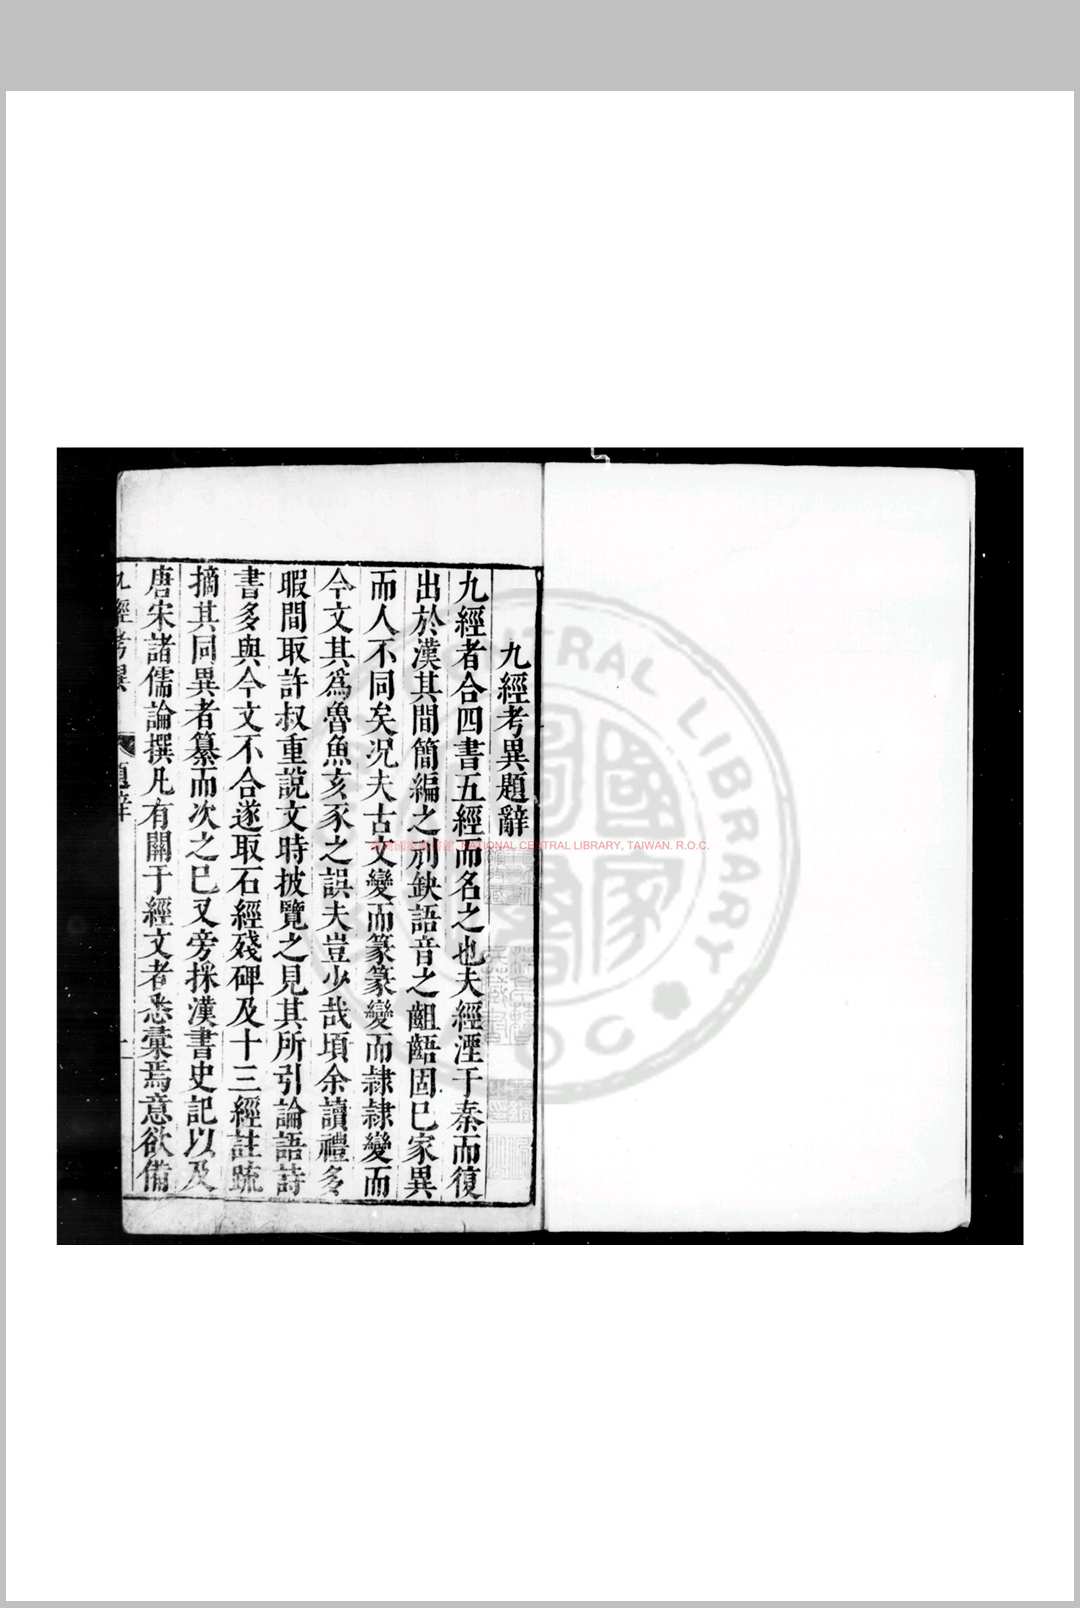 九經考異題辭
九經者合四書五經而名之也夫經湮于秦而復
出於漢其間簡編之刓缺語音之齟齬固已家異
而人不同矣况夫古文變而篆篆變而隷隷變而
今文其爲魯魚亥豕之誤夫豈少哉頃余讀禮多
暇間取許叔重說文時披覽之見其所引論語詩
書多與今文不合遂取石經殘碑及十三經註疏
摘其同異者纂而次之已又旁採漢書史記以及
唐宋諸儒論撰凡有關于經文者悉彙焉意欲備
九經考異
題辭
一
NATIONAL CENTRAL LIBRARY, TAIWAN. R.O.C.
CENTRAL LIBRARY